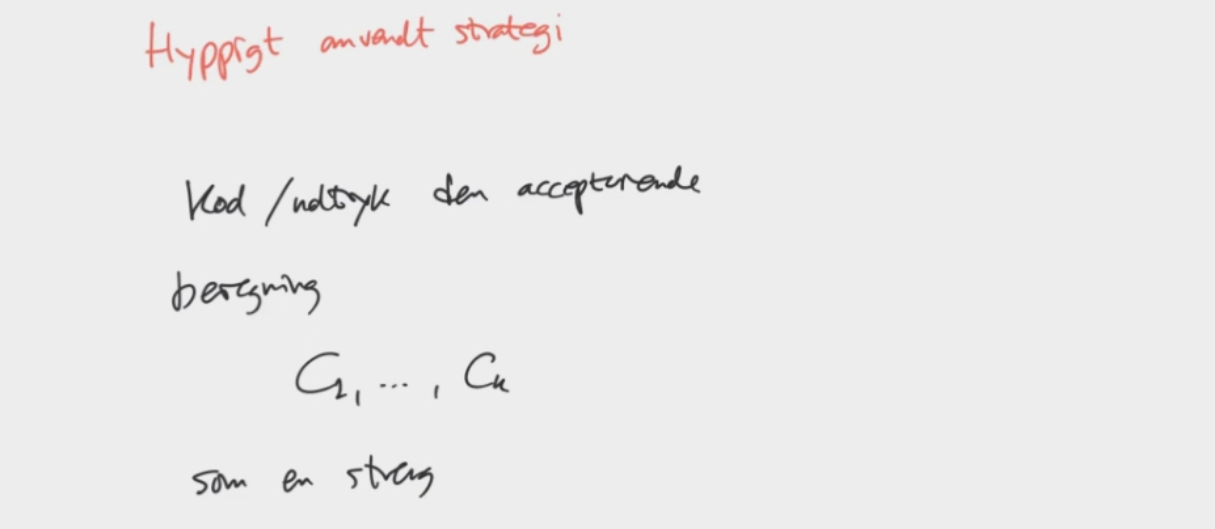 Hyppigt anvendt strategi
Kod /udtryk den accepterende
beregning
C₁, ... , Cₖ
som en streng